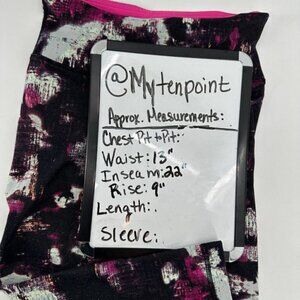 @Mytenpoint
Approx. Measurements:
Chest Pit + Pit:
Waist: 13"
Inseam: 22"
Rise: 9"
Length:
Sleeve: